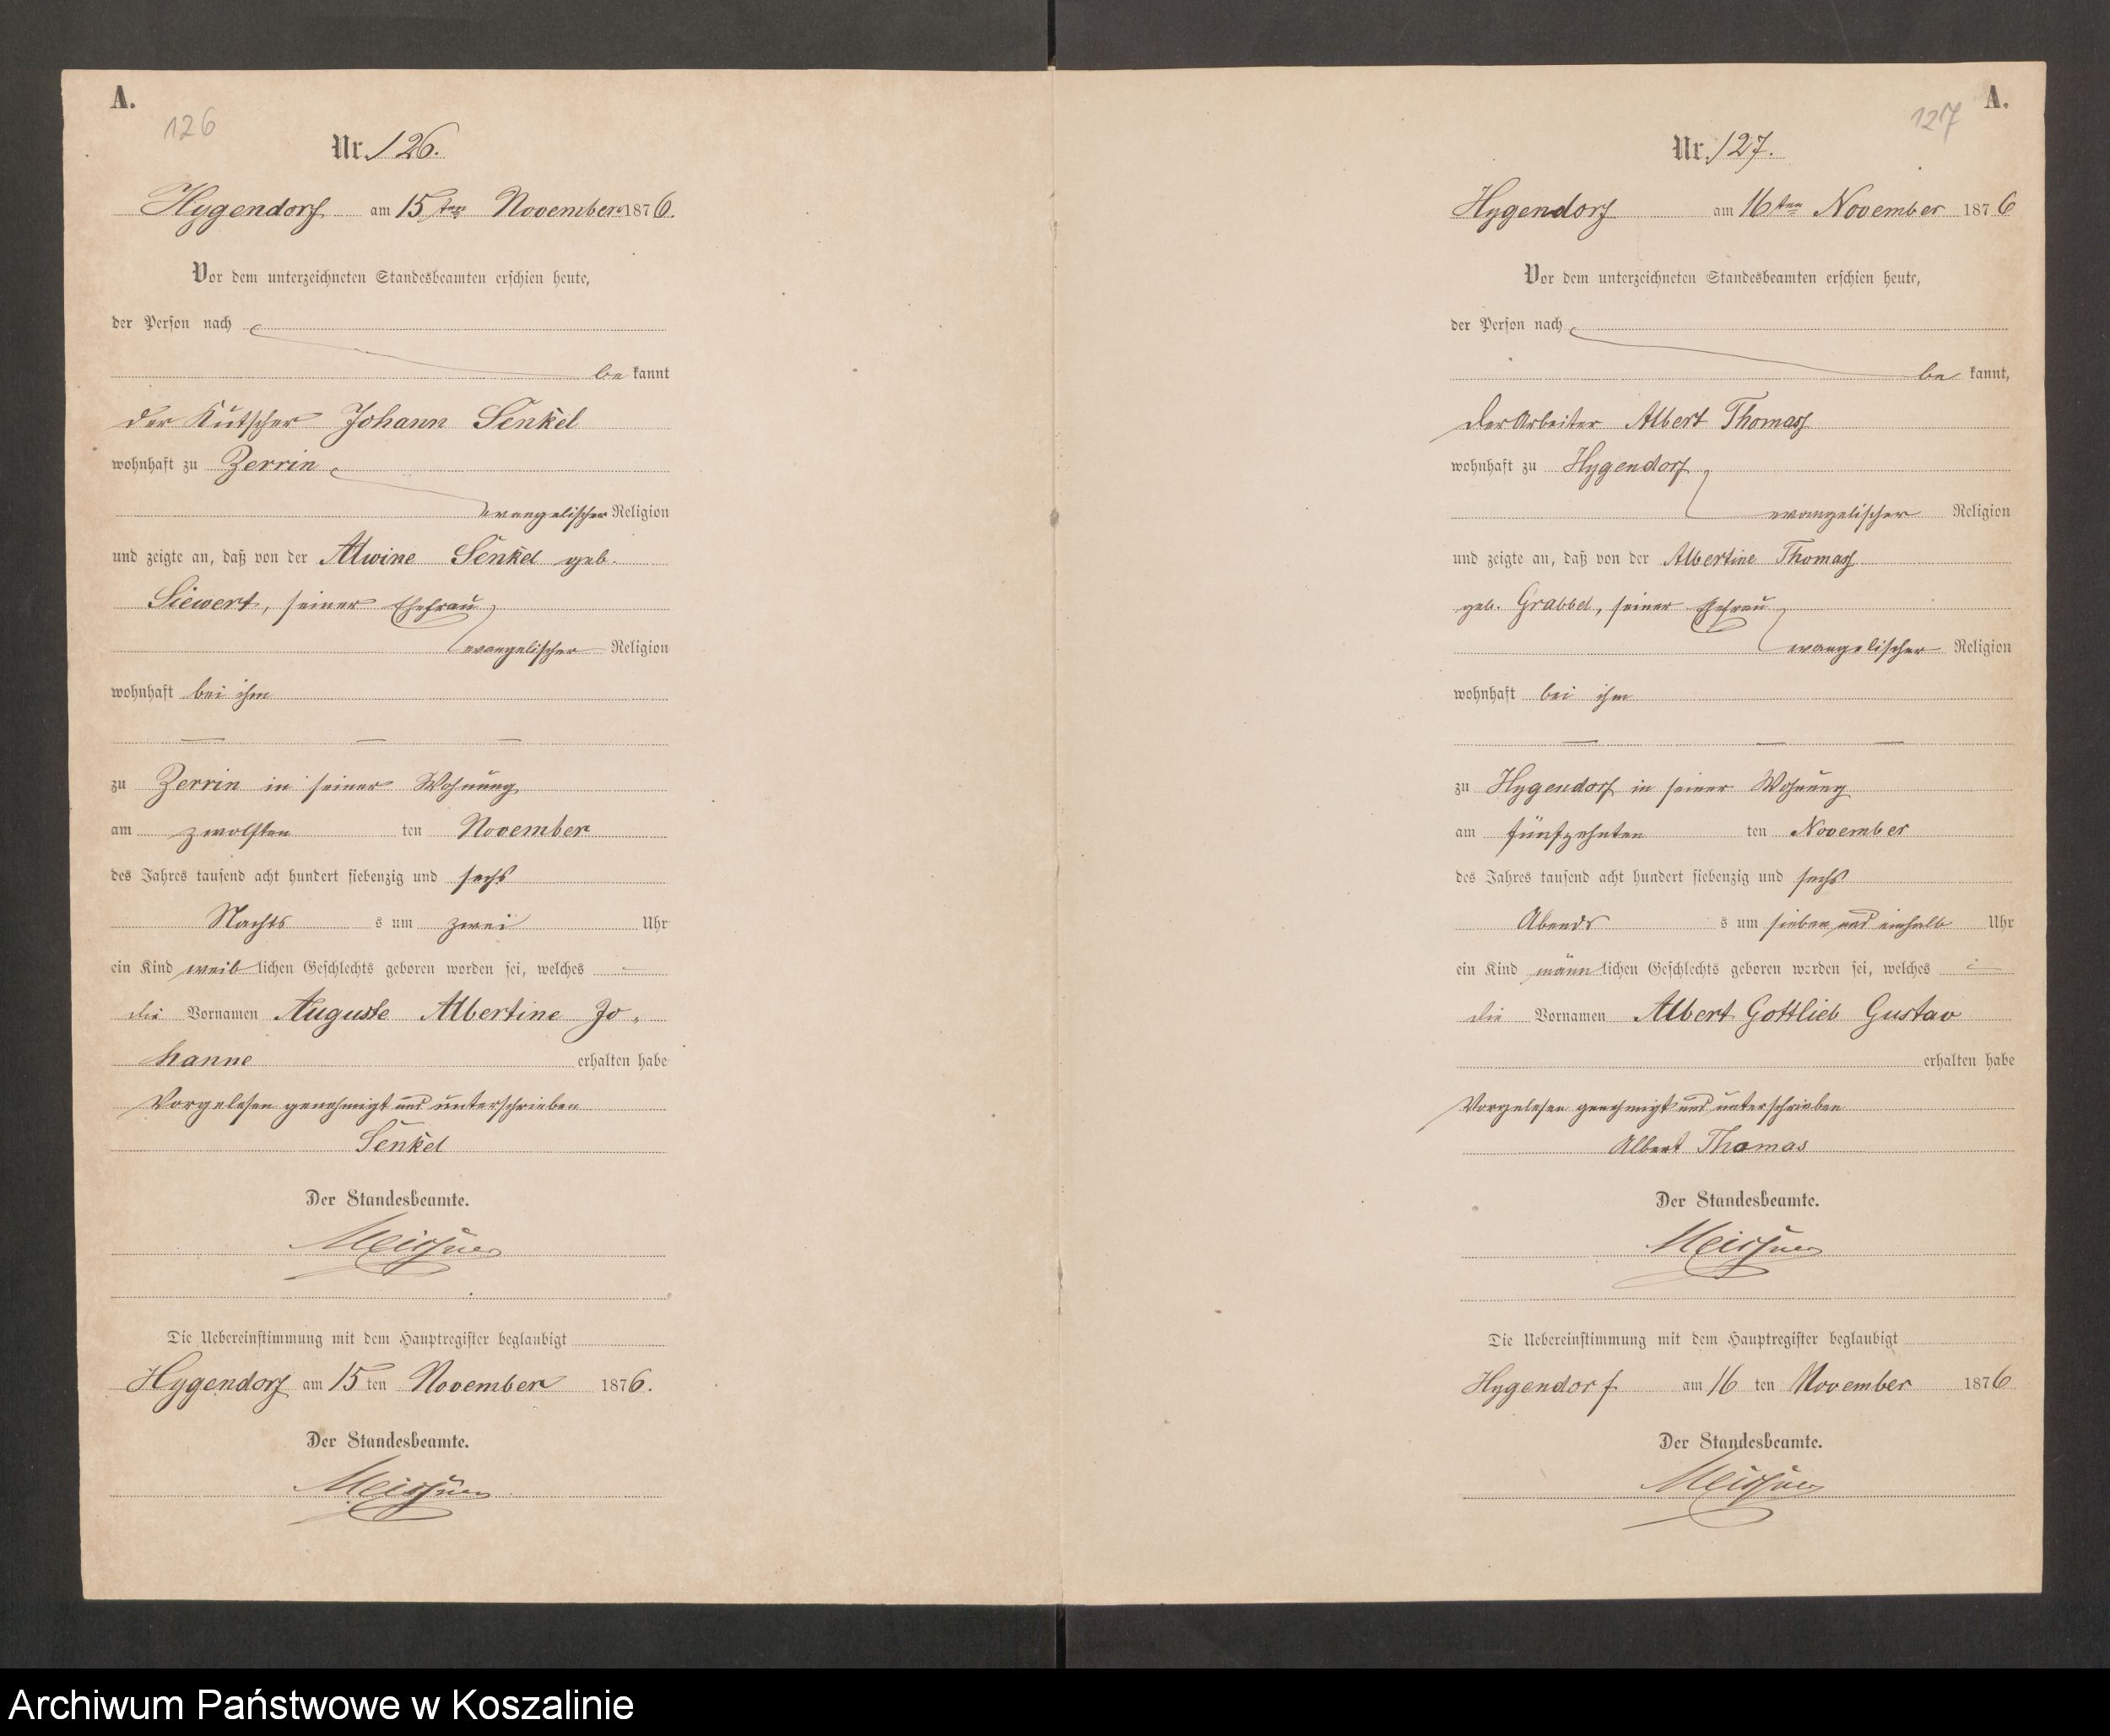 A.
126
Nr. 126.
Hygendorf am 15ten November 1876.
Vor dem unterzeichneten Standesbeamten erschien heute,
der Person nach
be kannt
der Kutscher Johann Senkel
wohnhaft zu Zerrin
evangelischer Religion
und zeigte an, daß von der Alwine Senkel geb.
Siewert, seiner Ehefrau,
evangelischer Religion
wohnhaft bei ihm
zu Zerrin in seiner Wohnung
am zwölften ten November
des Jahres tausend acht hundert siebenzig und sechs
Nachts s um zwei Uhr
ein Kind weib lichen Geschlechts geboren worden sei, welches
die Vornamen Auguste Albertine Jo-
hanne erhalten habe
Vorgelesen genehmigt und unterschrieben
Senkel
Der Standesbeamte.
Die Uebereinstimmung mit dem Hauptregister beglaubigt
Hygendorf am 15 ten November 1876.
Der Standesbeamte.
A.
127
Nr. 127.
Hygendorf am 16ten November 1876
Vor dem unterzeichneten Standesbeamten erschien heute,
der Person nach
be kannt,
der Arbeiter Albert Thomas
wohnhaft zu Hygendorf
evangelischer Religion
und zeigte an, daß von der Albertine Thomas
geb. Grabbel, seiner Ehefrau,
evangelischer Religion
wohnhaft bei ihm
zu Hygendorf in seiner Wohnung
am fünfzehnten ten November
des Jahres tausend acht hundert siebenzig und sechs
Abends s um sieben und einhalb Uhr
ein Kind männ lichen Geschlechts geboren worden sei, welches
die Vornamen Albert Gottlieb Gustav
erhalten habe
Vorgelesen genehmigt und unterschrieben
Albert Thomas
Der Standesbeamte.
Die Uebereinstimmung mit dem Hauptregister beglaubigt
Hygendorf am 16 ten November 1876
Der Standesbeamte.
Archiwum Państwowe w Koszalinie